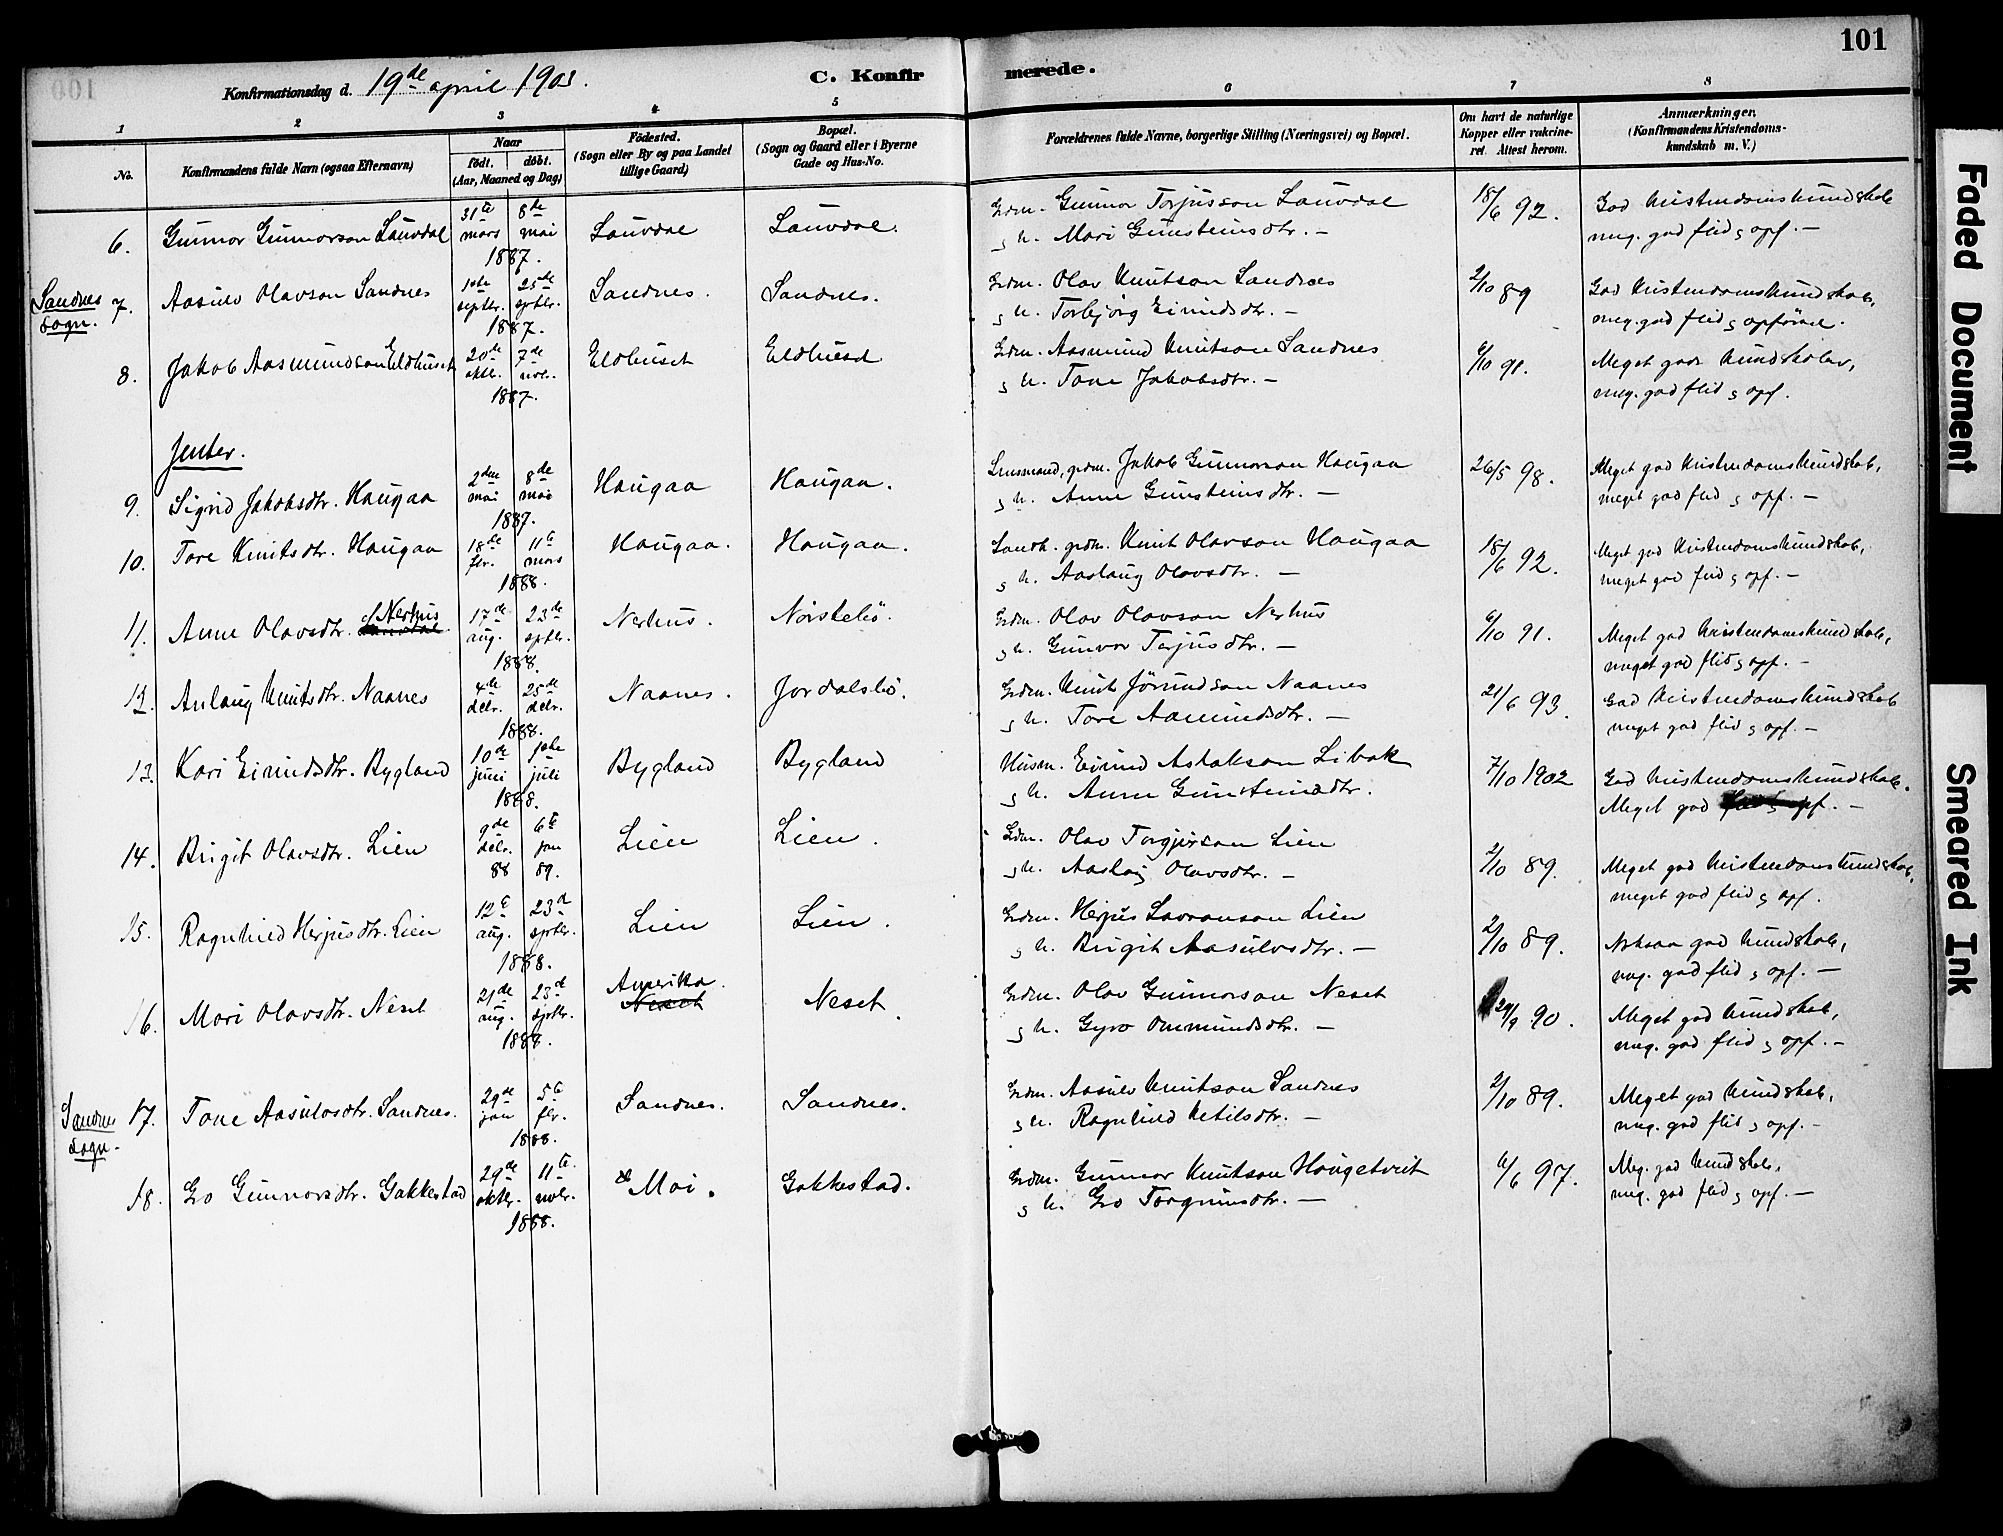 101
Konfirmationsdag d. 19de april 1903.
C. Konfirmerede.
1 2 3 4 5 6 7 8
No.
Konfirmandens fulde Navn (ogsaa Efternavn)
Naar
födt. döbt.
(Aar, Maaned og Dag)
Födested.
(Sogn eller By og paa Landet
tillige Gaard)
Bopæl.
(Sogn og Gaard eller i Byerne
Gade og Hus-No.
Forældrenes fulde Navne, borgerlige Stilling (Næringsvei) og Bopæl.
Om havt de naturlige
Kopper eller vakcine-
ret. Attest herom.
Anmærkninger.
(Konfirmandens Kristendoms-
kundskab m. V.)
6. Gunnar Gunnarson Lauvdal 31te mars 8de mai 1887. Lauvdal Lauvdal. Grdm. Gunnar Torjusson Lauvdal 18/6 92. God kristendomskundskab
s h. Mari Gunsteinsdtr. – meg. god flid s opf. –
Sandnes sogn.
7. Aasulv Olavson Sandnes 1ste septbr. 25de septbr. 1887. Sandnes. Sandnes. Grdm. Olav Knutson Sandnes 2/10 89 God kristendomskundskab,
s h. Torbjörg Eivindsdtr. – meg. god flid s opförsel.
8. Jakob Aasmundson Eldhuset 20de oktbr. 7de novbr. 1887. Eldhuset Eldhuset Grdm. Aasmund Knutson Sandnes 6/10 91. Meget gode kundskaber,
s h. Tone Jakobsdtr. – meg. god flid s opf.
Jenter.
9. Sigrid Jakobsdtr. Haugaa 2den mai 8de mai 1887. Haugaa Haugaa. Lensmand, grdm. Jakob Gunnarson Haugaa 26/5 98. Meget god kristendomskundskab,
s h. Anne Gunsteinsdtr. – meget god flid s opf. –
10. Tore Knutsdtr. Haugaa 18de fbr. 11te mars 1888. Haugaa. Haugaa. Landh. grdm. Knut Olavson Haugaa 18/6 92. Meget god kristendomskundskab,
s h. Aaslaug Olavsdtr. – meget god flid s opf. –
11. Anne Olavsdtr. Nerhus 17de aug. 23de sptbr. 1888. Nerhus. Grdm. Olav Olavson Nerhus 6/10 91. Meget god kristendomskundskab,
s h. Gunvor Terjusdtr. – meget god flid s opf. –
12. Anlaug Knutsdtr. Naanes 4de dcbr. 25de dcbr. 1888. Naanes. Jordalsbö. Grdm. Knut Jörundson Naanes 21/6 93. God kristendomskundskab
s h. Tore Aamundsdtr. – meget god flid s opf. –
13. Kari Eivindsdtr. Bygland 10de juni 1ste juli 1888. Bygland Bygland Husm. Eivind Aslakson Libak 7/10 1902 God kristendomskundskab.
s h. Anne Gunsteinsdtr. Meget god flid s opf. –
14. Birgit Olavsdtr. Lien 9de dcbr. 88 6te jan 89. Lien Lien. Grdm. Olav Torgjerson Lien 2/10 89. Meget god kristendomskundskab,
s h. Aaslaug Olavsdtr. – meget god flid s opf.
15. Ragnhild Herjusdtr. Lien 12te aug. 23de sptbr. 1888. Lien Lien. Grdm. Herjus Lavranson Lien 2/10 89. Nokaa god kundskab,
s h. Birgit Aasulvsdtr. – meg. god flid s opf. –
16. Mari Olavsdtr. Neset 21de aug. 23de sptbr. 1888. Amerika. Neset Neset. Grdm. Olav Gunnarson Neset 24/9 90. Meget god kundskab,
s h. Gyro Ommundsdtr. – meg. god flid s opf. –
Sandnes sogn.
17. Tone Aasulvsdtr. Sandnes. 29de jan 5te fbr. 1888. Sandnes. Sandnes. Grdm. Aasulv Knutson Sandnes 2/10 89. Meget god kundskab,
s h. Ragnhild Ketilsdtr. – meg. god flid s opf. –
18. Gro Gunnarsdtr. Gakkestad 29de oktbr. 11te novbr. 1888. Moi. Gakkestad. Grdm. Gunnar Knutson Haugetveit 6/6 97. Meg. god kundskab,
s h. Gro Torgrimsdtr. – meg. god flid s opf. –
Faded Document
Smeared Ink